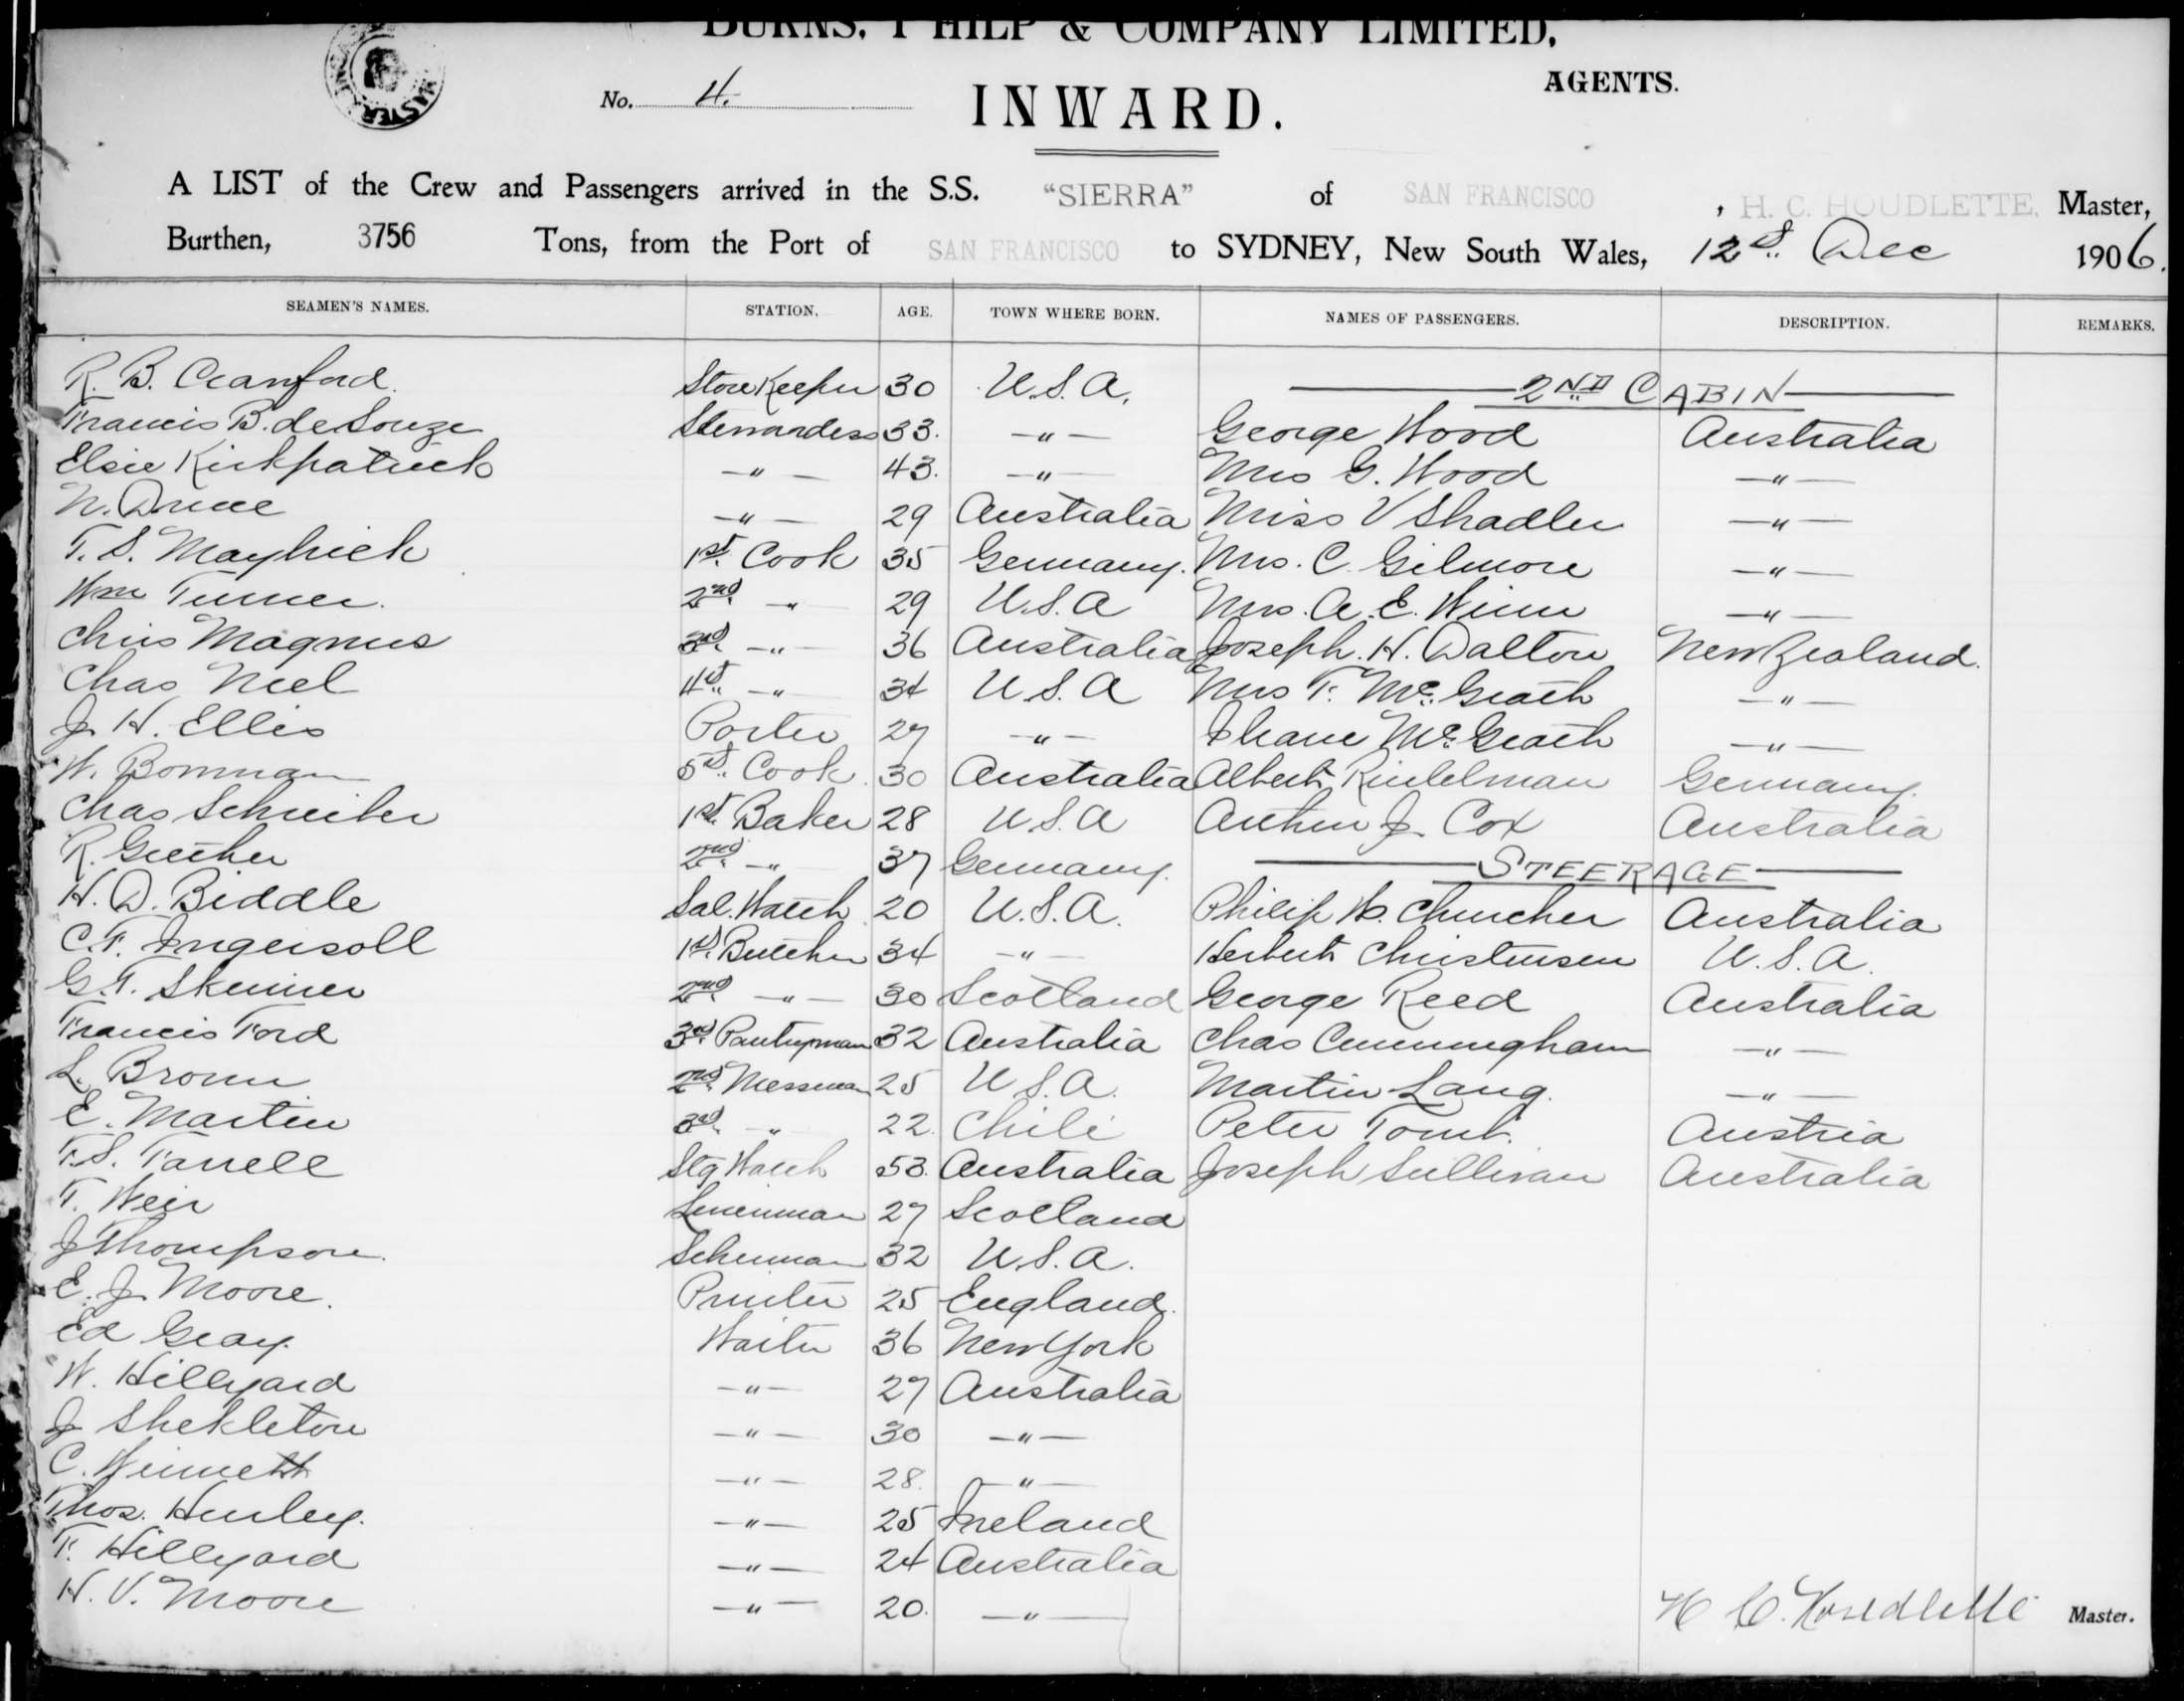 BURNS, PHILP & COMPANY LIMITED,
AGENTS.
MASTER
No. 4.
INWARD.
A LIST of the Crew and Passengers arrived in the S.S. "SIERRA" of SAN FRANCISCO, H. C. HOUDLETTE, Master,
Burthen, 3756 Tons, from the Port of SAN FRANCISCO to SYDNEY, New South Wales, 12th Dec 1906.
SEAMEN'S NAMES. STATION. AGE. TOWN WHERE BORN. NAMES OF PASSENGERS. DESCRIPTION. REMARKS.
R. B. Cranford. StoreKeeper 30 U.S.A. 2ND CABIN
Francis B. de Souze Stewardess 33. —"— George Wood Australia
Elsie Kirkpatrick —"— 43. —"— Mrs G. Wood —"—
N. —"— 29 Australia Miss V Shadler —"—
T. S. Mayhick 1st. Cook 35 Germany. Mrs. C. Gilmore —"—
Wm Turner. 2nd —"— 29 U.S.A Mrs. A. E. Winn —"—
Chris Magnus 3rd —"— 36 Australia Joseph. H. Dalton New Zealand.
Chas Niel 4th —"— 34 U.S.A Mrs F. McGrath —"—
J. H. Ellis Porter 27 —"— McGrath —"—
W. Bowman 5th Cook 30 Australia Albert Germany.
Chas Schreiber 1st. Baker 28 U.S.A Arthur J. Cox Australia
R. 2nd —"— 37 Germany. STEERAGE
H. D. Biddle Sal. Watch 20 U.S.A. Philip W. Churcher Australia
C. F. Ingersoll 1st. Butcher 34 —"— Herbert Christensen U.S.A.
G. T. Skinner 2nd —"— 30 Scotland George Reed Australia
Francis Ford 3rd Pantryman 32 Australia Chas Cunningham —"—
L. Brown 2nd Messman 25 U.S.A. Martin Lang. —"—
E. Martin 3rd " 22. Chili Peter Austria
F. S. Farrell Stg Watch 53. Australia Joseph Sullivan Australia
T. Weir Linenman 27 Scotland
J Thompson. 32 U.S.A.
E. J. Moore. Printer 25 England.
Ed Gray. Waiter 36 New York
W. Hillyard —"— 27 Australia
J Shekleton —"— 30 —"—
C. Winnett —"— 28. —"—
Thos. Hurley. —"— 25 Ireland
F. Hillyard —"— 24 Australia
H. V. Moore —"— 20. —"—
H C. Houdlette Master.